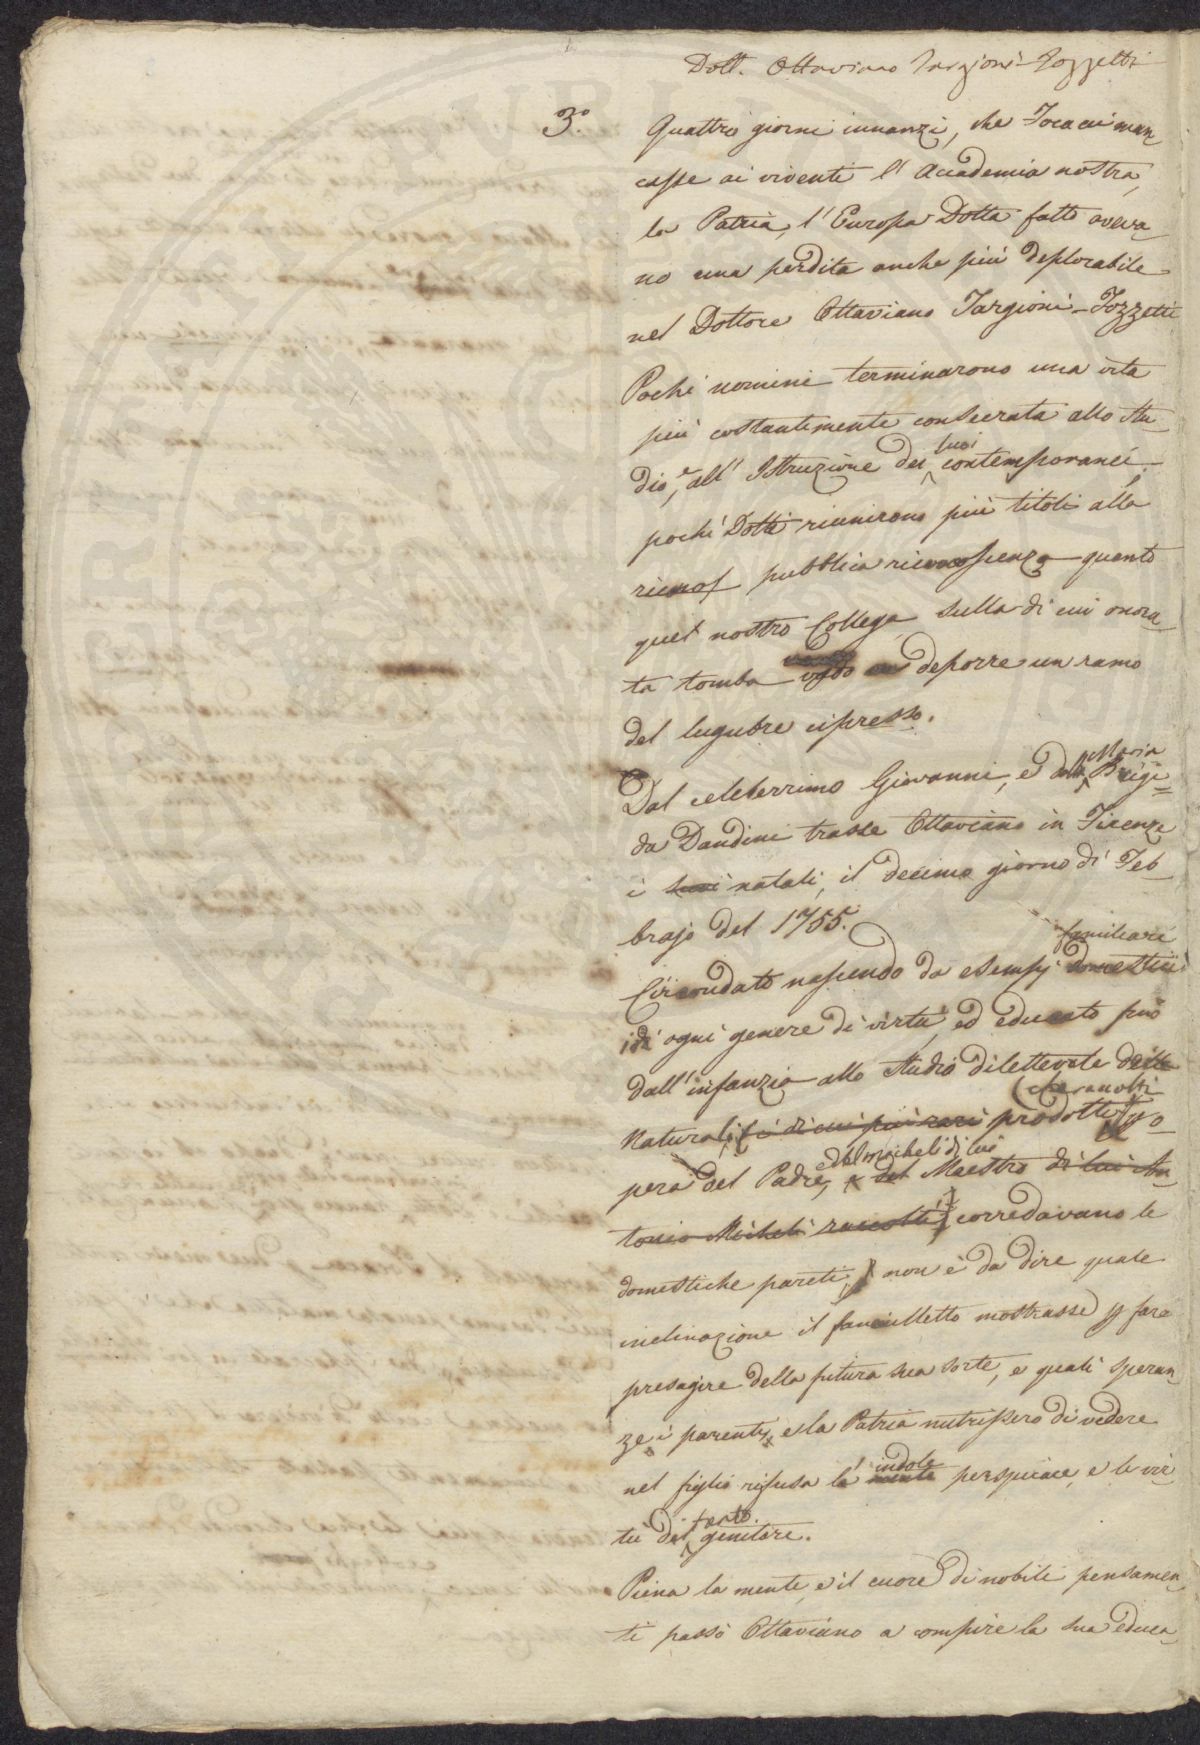 Dott. Ottaviano Targioni-Tozzetti
3.o
Quattro giorni innanzi, che Tocacci man
casse ai viventi l'Accademia nostra,
la Patria, l'Europa Dotta fatto aveva
no una perdita anche più deplorabile
nel Dottore Ottaviano Targioni-Tozzetti
Pochi uomini terminarono una vita
più costantemente consecrata allo Stu
dio, e all'Istruzione dei suoi contemporanei,
pochi Dotti riunirono più titoli alla
pubblica riconoscenza quanto
quel nostro Collega sulla di cui onora
ta tomba deporre un ramo
del lugubre cipresso.
Dal celeberrimo Giovanni, e da Maria Brigi=
da Dandini trasse Ottaviano in Firenze
i suoi natali, il decimo giorno di Feb
brajo del 1755.
familiari
Circondato nascendo da esempj domestici
di ogni genere di virtù, ed educato può
dall'infanzia allo studio dilettevole delle
che ramolti
Naturali i di cui più rari prodotti
pera del Padre, e del Micheli di lui Maestro di lui An
tonio Micheli raccolti corredavano le
domestiche pareti, non è da dire quale
inclinazione il fanciulletto mostrasse p fare
presagire della futura sua sorte, e quali speran
ze i parenti, e la Patria nutrissero di vedere
nel figlio rifusa la mente indole perspicace, e le vir
tù del genitore.
Piena la mente, e il cuore di nobili pensamen
ti passò Ottaviano a compire la sua educa